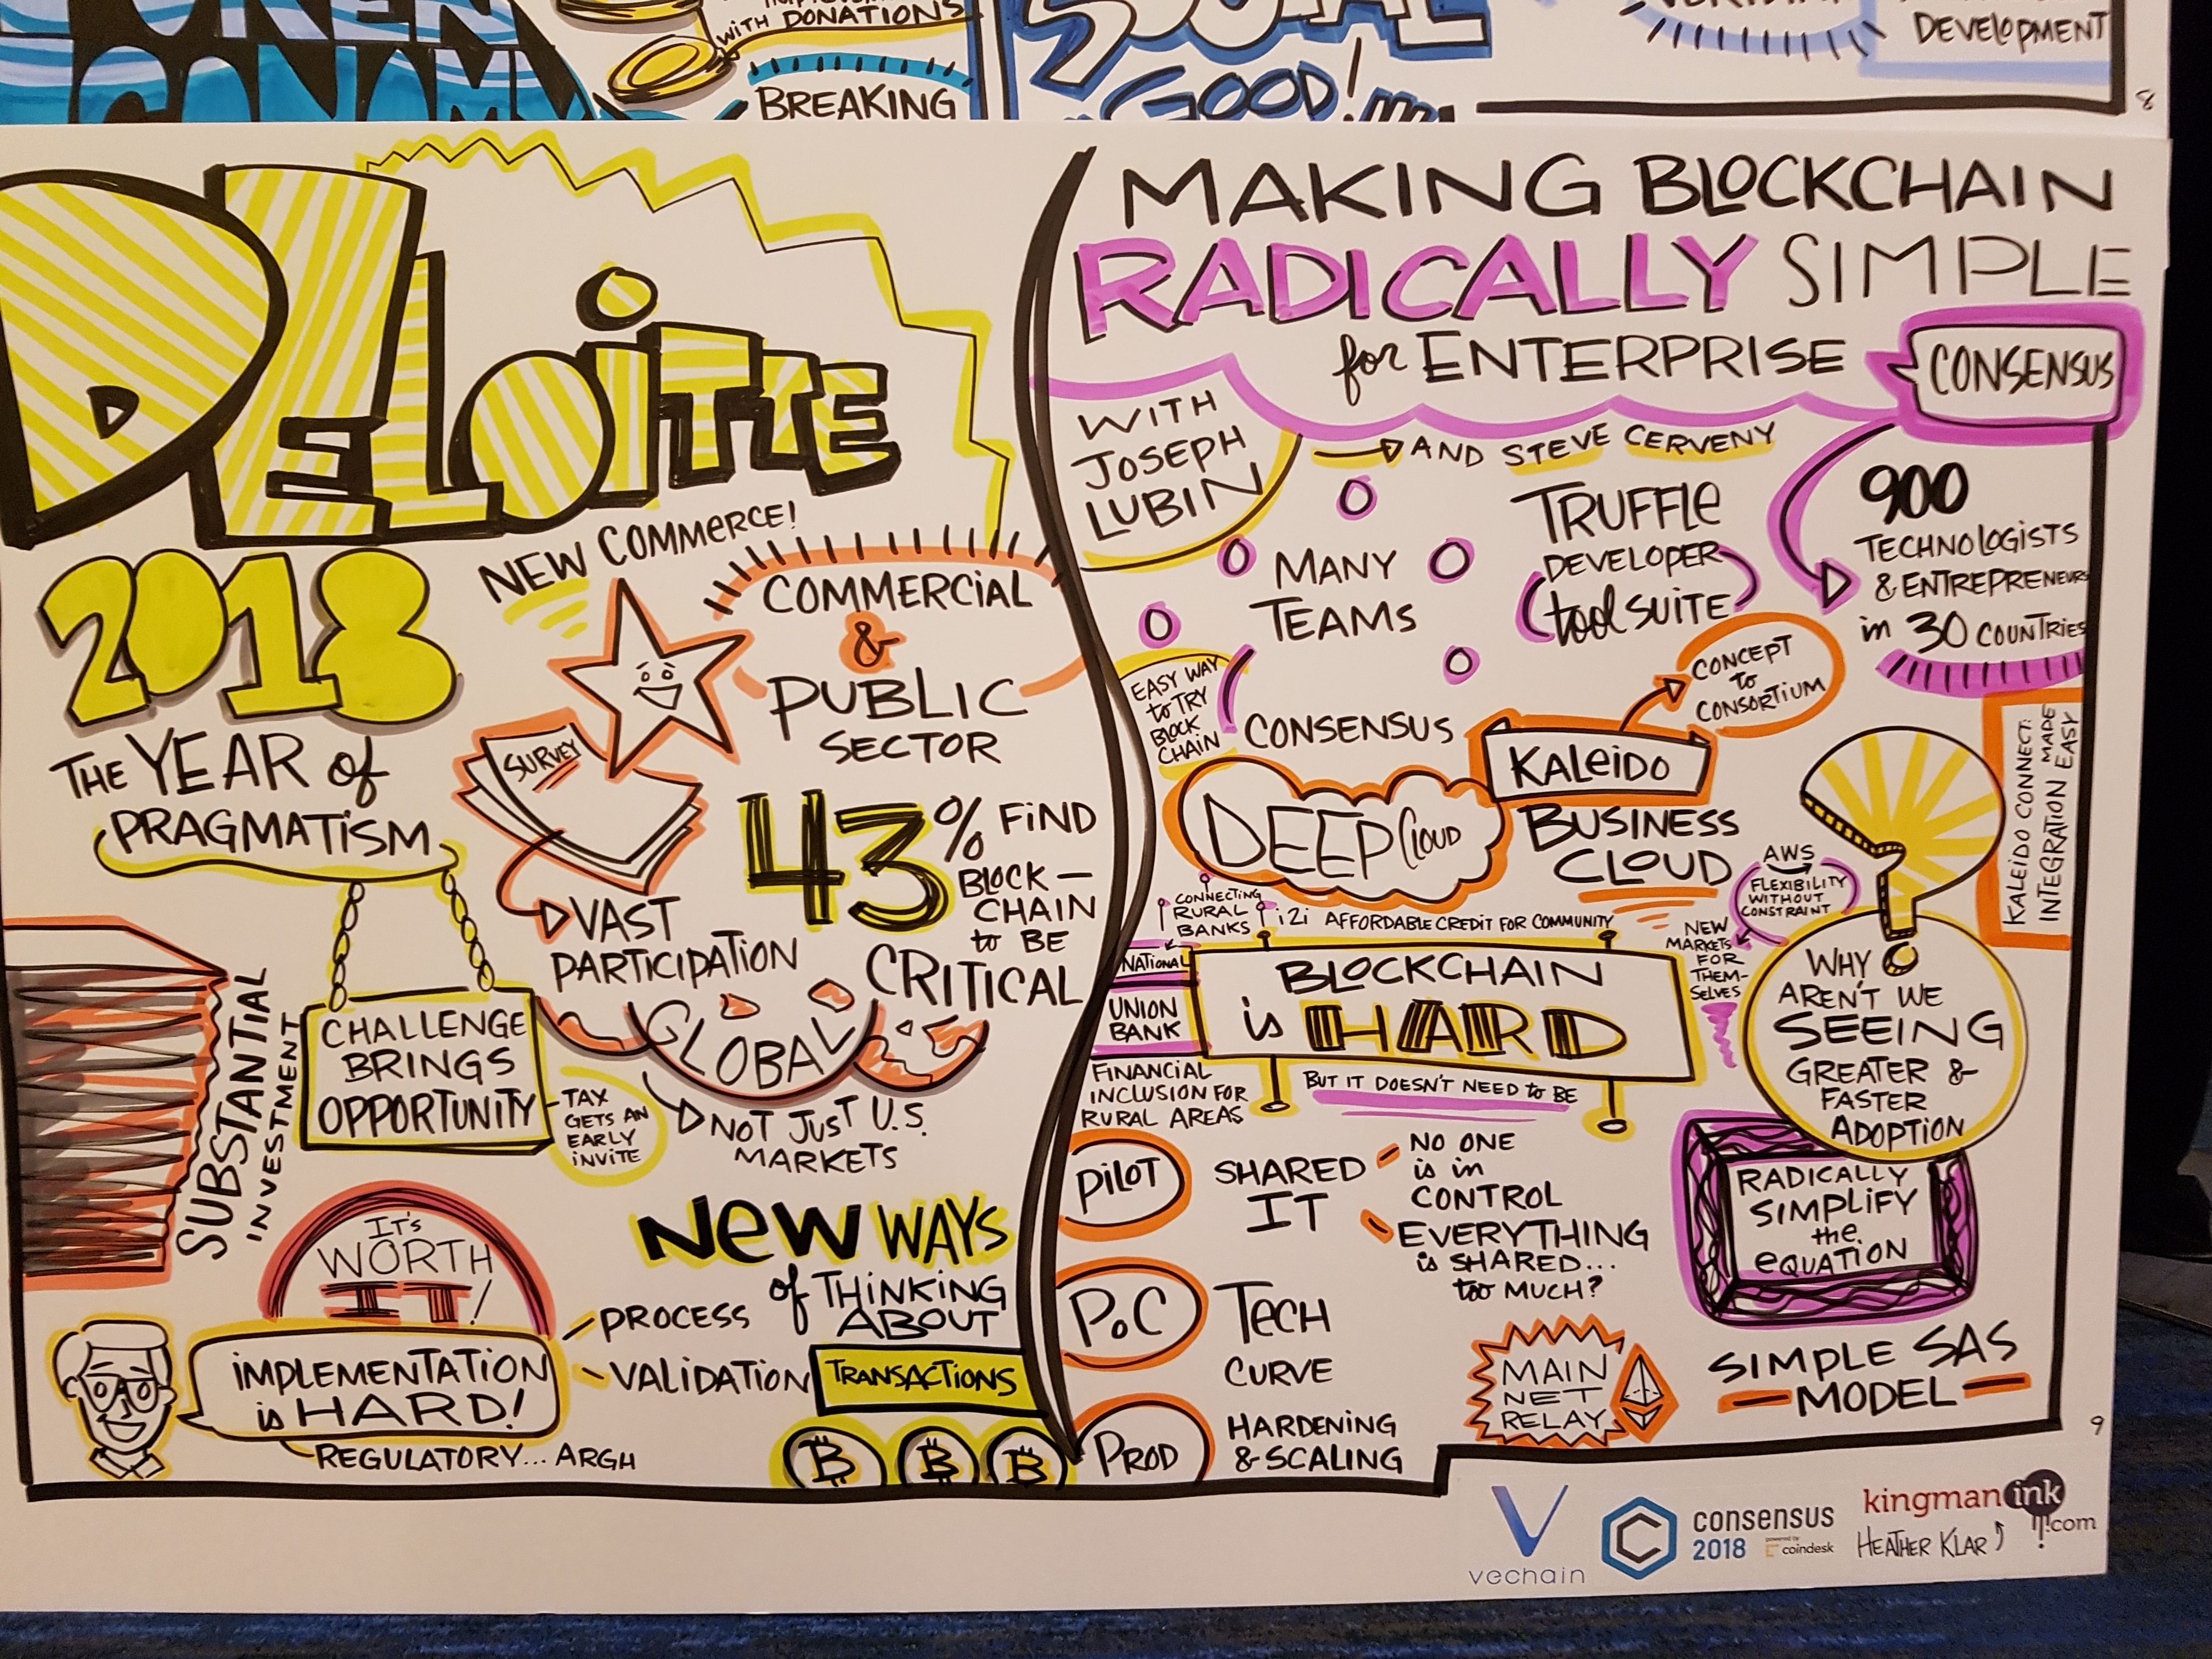 WITH DONATIONS
BREAKING
GOOD!
DEVELOPMENT
8
DELOITTE
2018
THE YEAR of
PRAGMATISM
CHALLENGE
BRINGS
OPPORTUNITY
TAX
GETS AN
EARLY
INVITE
SUBSTANTIAL
INVESTMENT
NEW COMMERCE!
COMMERCIAL
&
PUBLIC
SECTOR
SURVEY
VAST
PARTICIPATION
43% FIND
BLOCK-
CHAIN
to BE
CRITICAL
GLOBAL
NOT JUST U.S.
MARKETS
IT'S
WORTH
IT!
IMPLEMENTATION
is HARD!
REGULATORY... ARGH
NEW WAYS
of THINKING
ABOUT
PROCESS
VALIDATION
TRANSACTIONS
B B B
MAKING BLOCKCHAIN
RADICALLY SIMPLE
for ENTERPRISE
CONSENSUS
WITH
JOSEPH
LUBIN
AND STEVE CERVENY
MANY
TEAMS
TRUFFLE
DEVELOPER
tool SUITE
900
TECHNOLOGISTS
& ENTREPRENEURS
in 30 COUNTRIES
EASY WAY
to TRY
BLOCK
CHAIN
CONSENSUS
KALEIDO
CONCEPT
to
CONSORTIUM
DEEP CLOUD
BUSINESS
CLOUD
KALEIDO CONNECT:
INTEGRATION MADE
EASY
AWS
FLEXIBILITY
WITHOUT
CONSTRAINT
NEW
MARKETS
FOR
THEM-
SELVES
CONNECTING
RURAL
BANKS
i2i AFFORDABLE CREDIT FOR COMMUNITY
NATIONAL
UNION
BANK
FINANCIAL
INCLUSION FOR
RURAL AREAS
BLOCKCHAIN
is HARD
BUT IT DOESN'T NEED to BE
WHY
AREN'T WE
SEEING
GREATER &
FASTER
ADOPTION
RADICALLY
SIMPLIFY
the
EQUATION
PILOT
SHARED
IT
NO ONE
is in
CONTROL
EVERYTHING
is SHARED...
too MUCH?
PoC
TECH
CURVE
PROD
HARDENING
& SCALING
MAIN
NET
RELAY
SIMPLE SAS
MODEL
9
vechain
consensus
2018
powered by
coindesk
kingmanink
.com
HEATHER KLAR